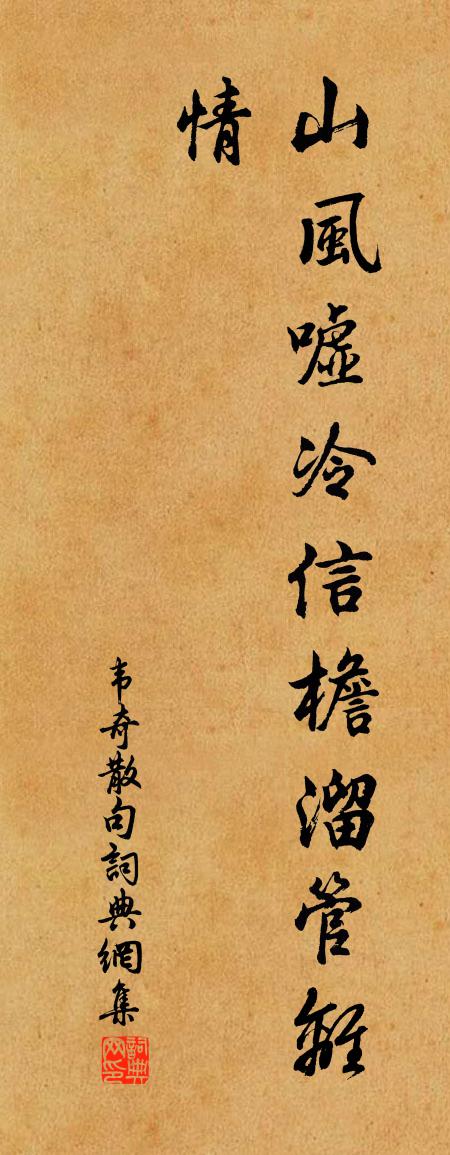 山風噓冷信檐溜管離
情
韦奇散句詞典網集
詞典网印